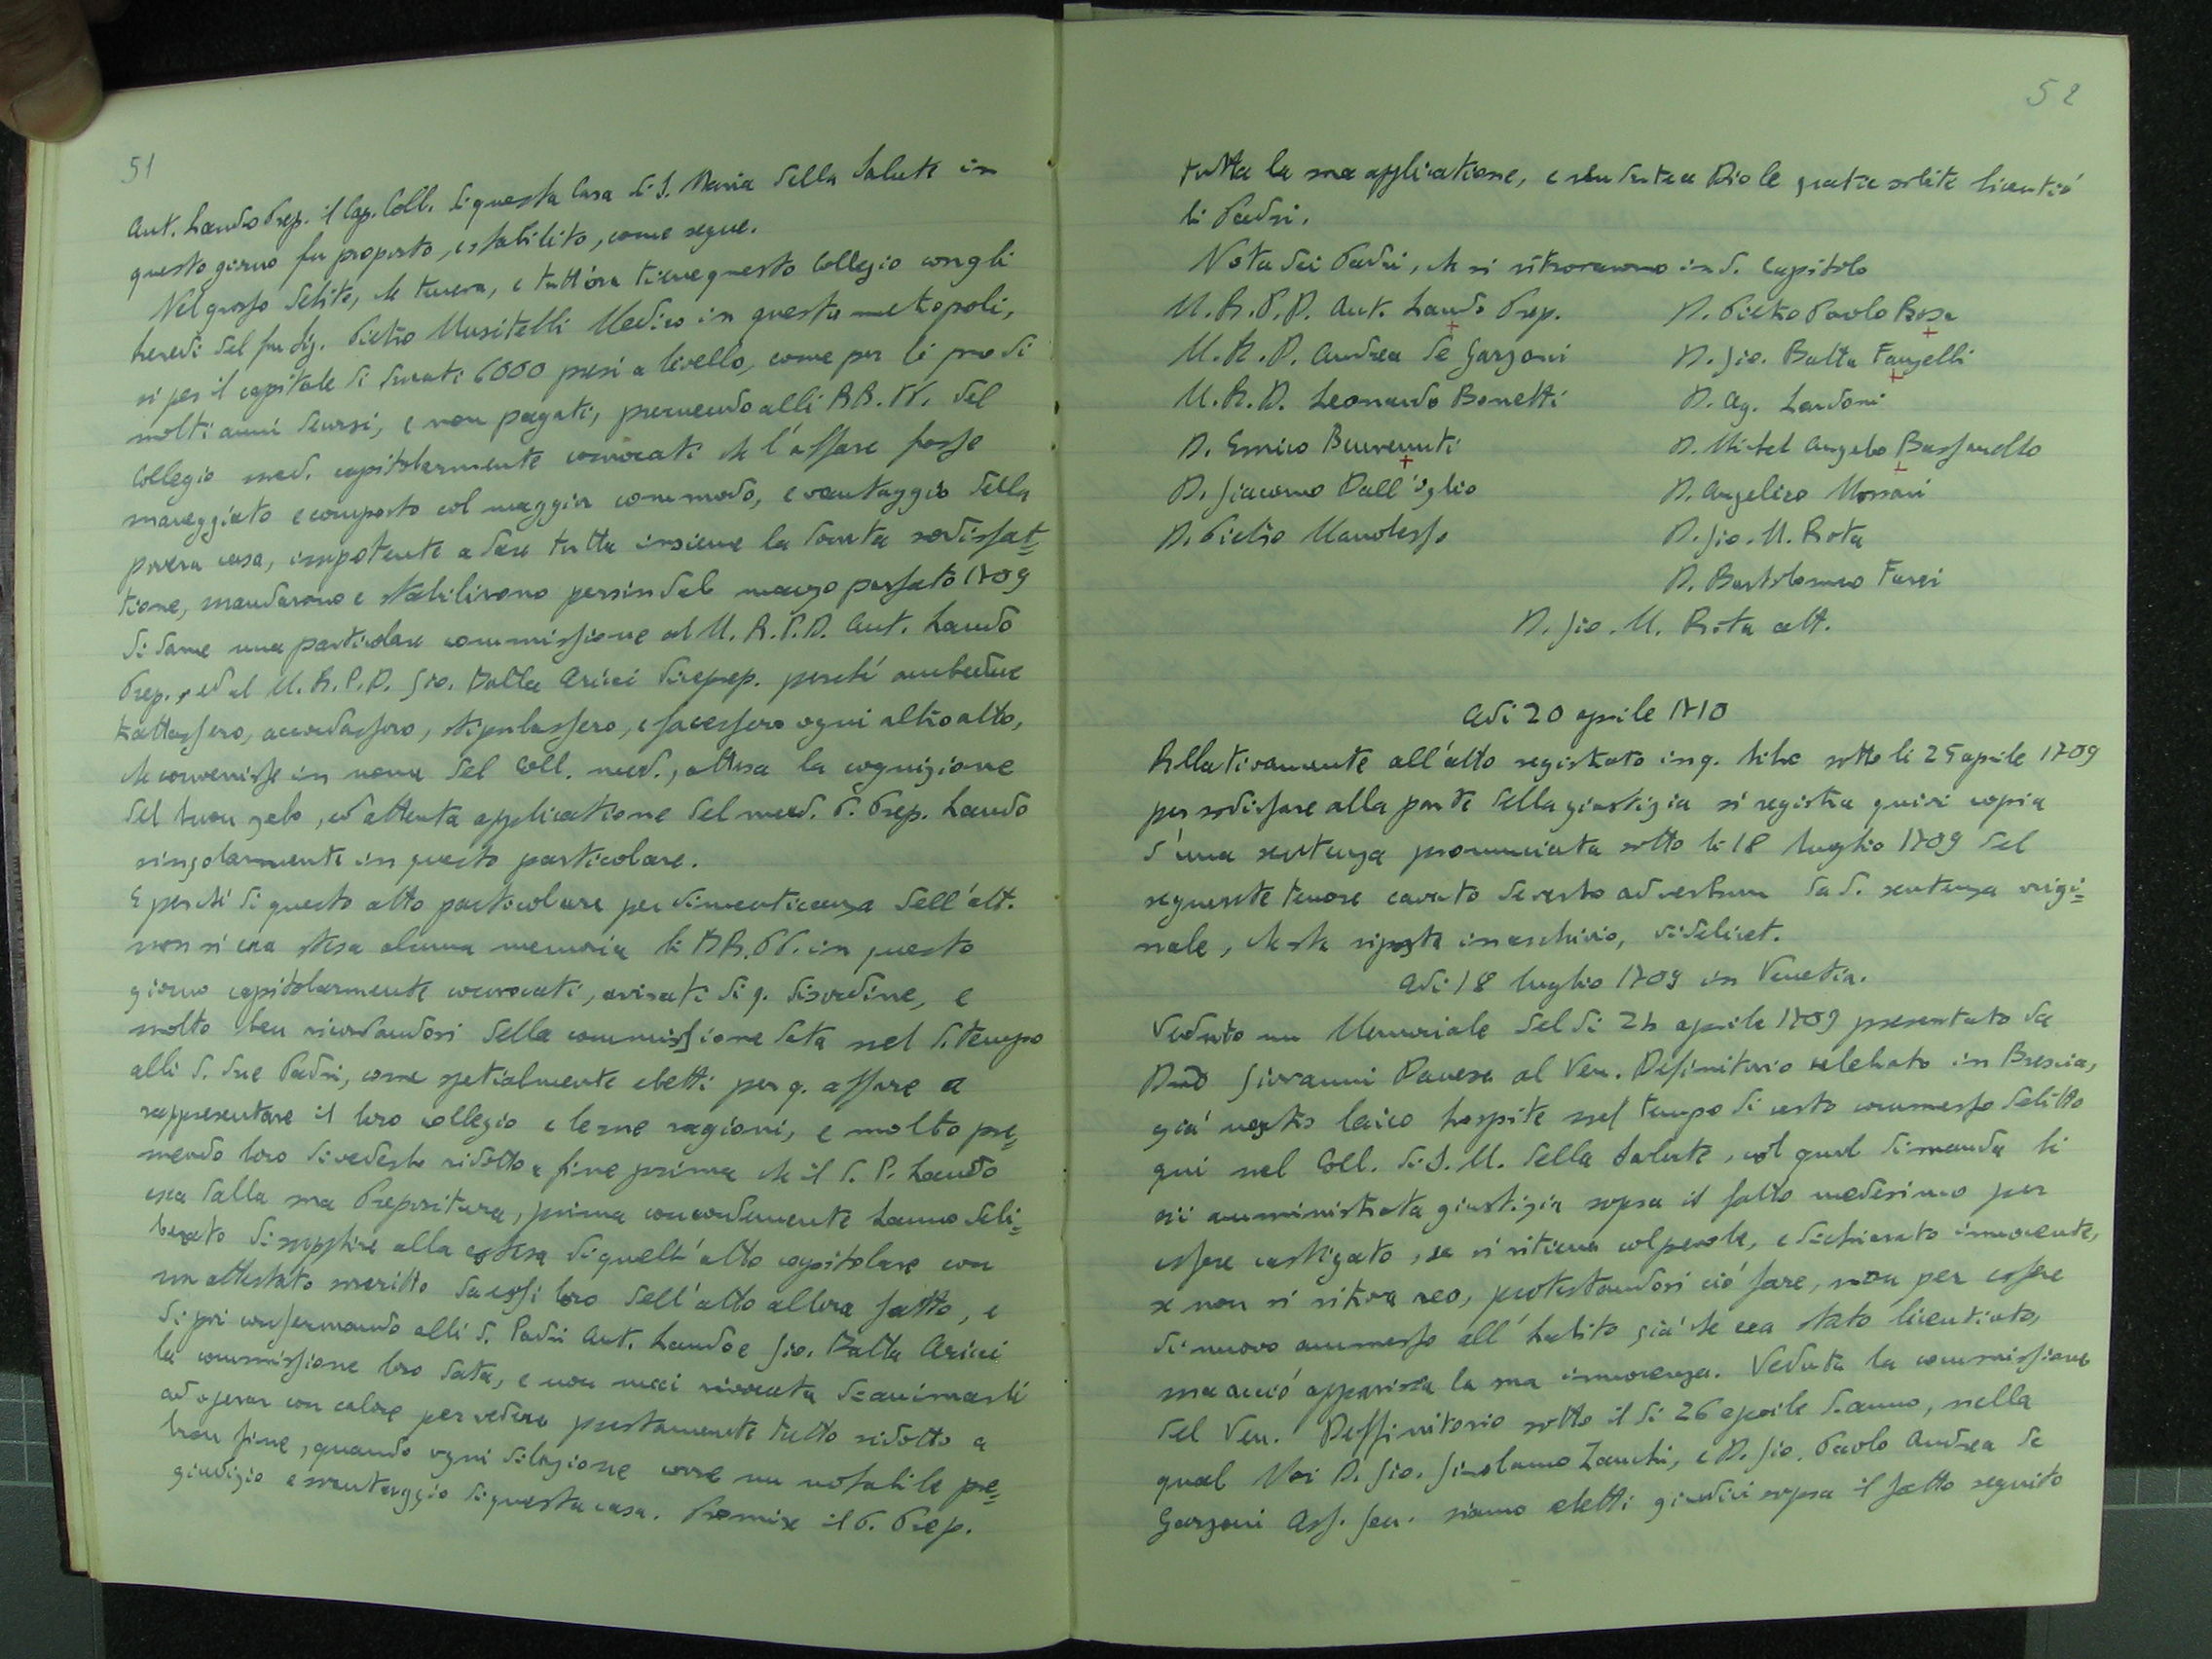 51
Ant. Lando Prep. il Cap. Coll. di questa Casa di S. Maria della Salute in
questo giorno fu proposto, e stabilito, come segue.
Nel grosso debito, che teneva, e tutt'ora tiene questo Collegio con gli
heredi del fu Sig. Pietro Musitelli Medico in questa metropoli,
si per il capitale di ducati 6000 presi a livello, come per li pro di
molti anni scorsi, e non pagati, premendo alli RR. PP. del
Collegio med. capitolarmente convocati che l'affare fosse
maneggiato e composto col maggior commodo, e vantaggio della
povera casa, impotente a dare tutta insieme la dovuta sodisfat=
tione, mandarono e stabilirono persin dal marzo passato 1709
di darne una particolare commissione al M. R. P. D. Ant. Lando
Prep., ed al M. R. P. D. Gio. Batta Arici Viceprep. perché ambedue
trattassero, accordassero, stipulassero, e facessero ogni altro atto,
che convenisse in nome del Coll. med., attesa la cognizione
del buon zelo, ed attenta applicatione del med. P. Prep. Lando
singolarmente in questo particolare.
E perché di questo atto particolare per dimenticanza dell'att.
non si era stesa alcuna memoria li RR. PP. in questo
giorno capitolarmente convocati, avisati di q. disordine, e
molto ben ricordandosi della commissione data nel d. tempo
alli d. due Padri, come spetialmente eletti per q. affare a
rappresentare il loro collegio e le sue ragioni, e molto pre=
mendo loro di vederlo ridotto a fine prima che il d. P. Lando
esca dalla sua Prepositura, prima concordemente hanno deli=
berato di supplire alla stesa di quell'atto capitolare con
un attestato scritto da essi loro dell'atto allora fatto, e
di poi confermando alli d. Padri Ant. Lando e Gio. Batta Arici
la commissione loro data, e non mai rivocata d'animarli
ad operar con calore per vedere prestamente tutto ridotto a
buon fine, quando ogni dilazione corre un notabile pre=
giudizio e svantaggio di questa casa. Promise il P. Prep.
52
tutta la sua applicatione, e rendute a Dio le gratie solite licentiò
li Padri.
Nota dei Padri, che si ritrovarono in d. Capitolo
M. R. P. D. Ant. Lando Prep.
M. R. D. Andrea de Garzoni
M. R. D. Leonardo Bonetti
D. Enrico Benvenuti
D. Giacomo Dall'Oglio
D. Pietro Manolesso
D. Pietro Paolo Bosa
D. Gio. Batta Fanzelli
D. Ag. Landoni
D. Michel Angelo Bassanello
D. Angelico Morari
D. Gio. M. Rota
D. Bartolomeo Farei
D. Gio. M. Rota att.
Adi 20 aprile 1710
Rellativamente all'atto registrato in q. libro sotto li 25 aprile 1709
per sodisfare alla parte della giustizia si registra quivi copia
d'una sentenza pronunciata sotto li 18 luglio 1709 del
seguente tenore cavato de verbo ad verbum da d. sentenza origi=
nale, che sta riposta in archivio, videlicet.
Adi 18 luglio 1709 in Venetia.
Veduto un Memoriale del di 24 aprile 1709 presentato da
Giovanni Pavese al Ven. Definitorio celebrato in Brescia,
già nostro laico hospite nel tempo di certo commesso delitto
qui nel Coll. di S. M. della Salute, col qual dimanda li
sii amministrata giustizia sopra il fatto medesimo per
essere castigato, se si ritiene colpevole, e dichiarato innocente,
se non si ritrova reo, protestandosi ciò fare, non per essere
di nuovo ammesso all'habito già che era stato licentiato,
ma acciò apparisca la sua innocenza. Veduta la commissione
del Ven. Deffinitorio sotto il di 26 aprile d. anno, nella
qual Noi D. Gio. Girolamo Zanchi, e D. Gio. Paolo Andrea de
Garzoni Ass. Gen. siamo eletti giudici sopra il fatto seguito